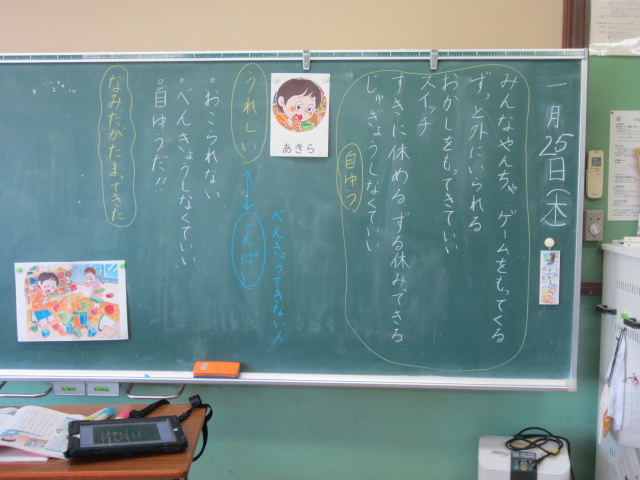 一月25日(木)
みんなやんちゃ ゲームをもってくる
ずっと外にいられる
おかしをもってきていい
スイッチ
すきに休める ずる休みできる
じゅぎょうしなくていい
自ゆう
あきら
うれしい
しんぱい
べんきょうできない人
・おこられない
・べんきょうしなくていい
・自ゆうだ!!
なみだがたまってきた